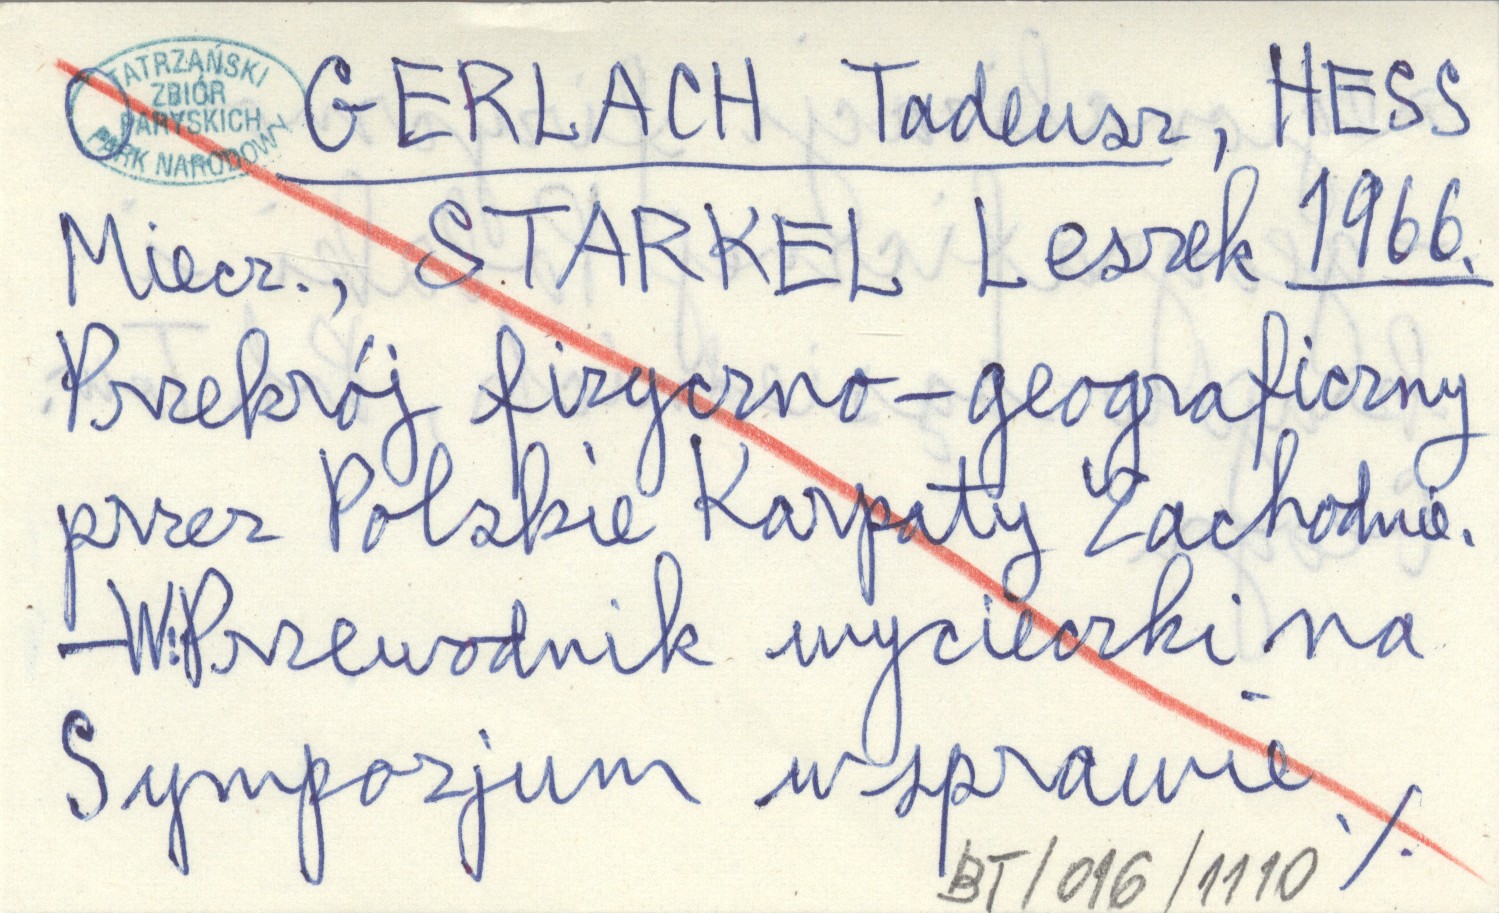 TATRZAŃSKI
ZBIÓR
PARYSKICH
PARK NARODOWY
O GERLACH Tadeusz, HESS
Miecz., STARKEL Leszek 1966.
Przekrój fizyczno-geograficzny
przez Polskie Karpaty Zachodnie.
-W:Przewodnik wycieczki na
Sympozjum w sprawie ./.
BT/016/1110